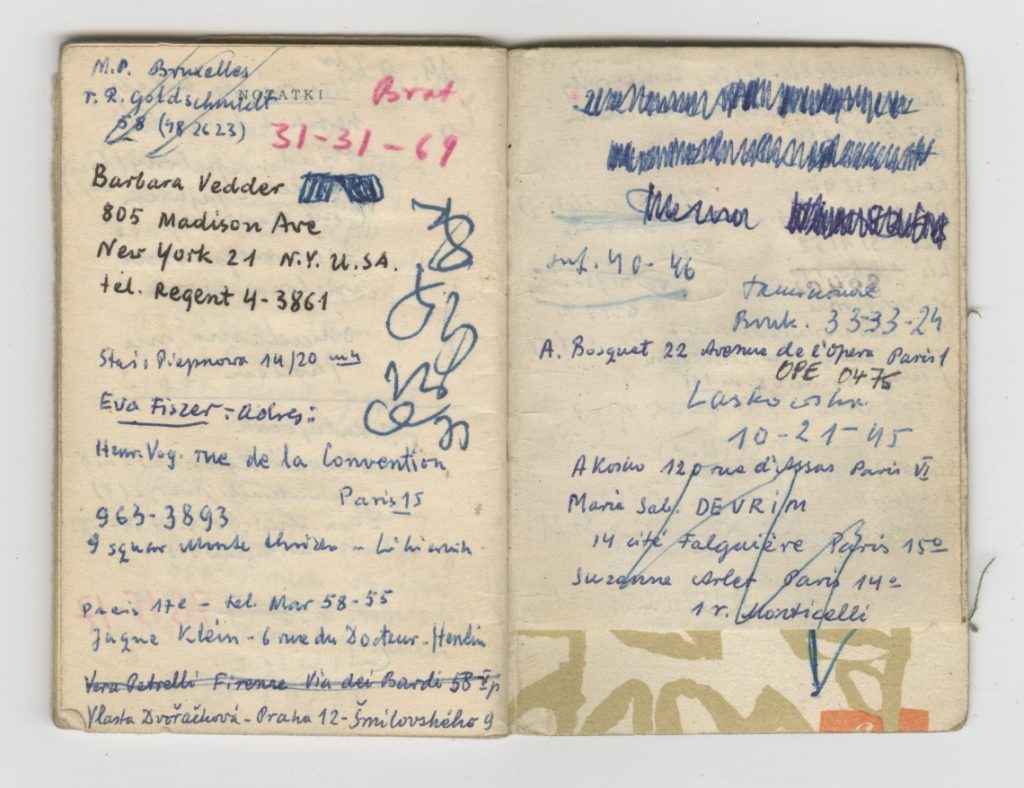 M.P. Bruxelles
r. R. Goldschmidt
58 (48 26 23)
NOTATKI
Brat.
31-31-69
Barbara Vedder
805 Madison Ave
New York 21 N.Y. U.S.A.
tel. Regent 4-3861
14/20 m 4
Eva Fiszer - adres:
rue de la Convention
Paris 15
963-3893
9 square
Paris 17e - tel. Mar 58-55
Jaque Klein - 6 rue du Docteur - Heulin
Vera Petrelli Firenze Via dei Bardi 58
Vlasta Dvořáčková - Praha 12 - Šmilovského 9
inf. 40-46
33-33-24
A. Bosquet 22 Avenue de l'Opera Paris 1
OPE 0475
Laskowska
10-21-45
A Kosko 120 rue d'Assas Paris VI
Maria Sab. DEVRIM
14 cité Falguière Paris 15º
Suzanne Arlet Paris 14º
1 r. Monticelli